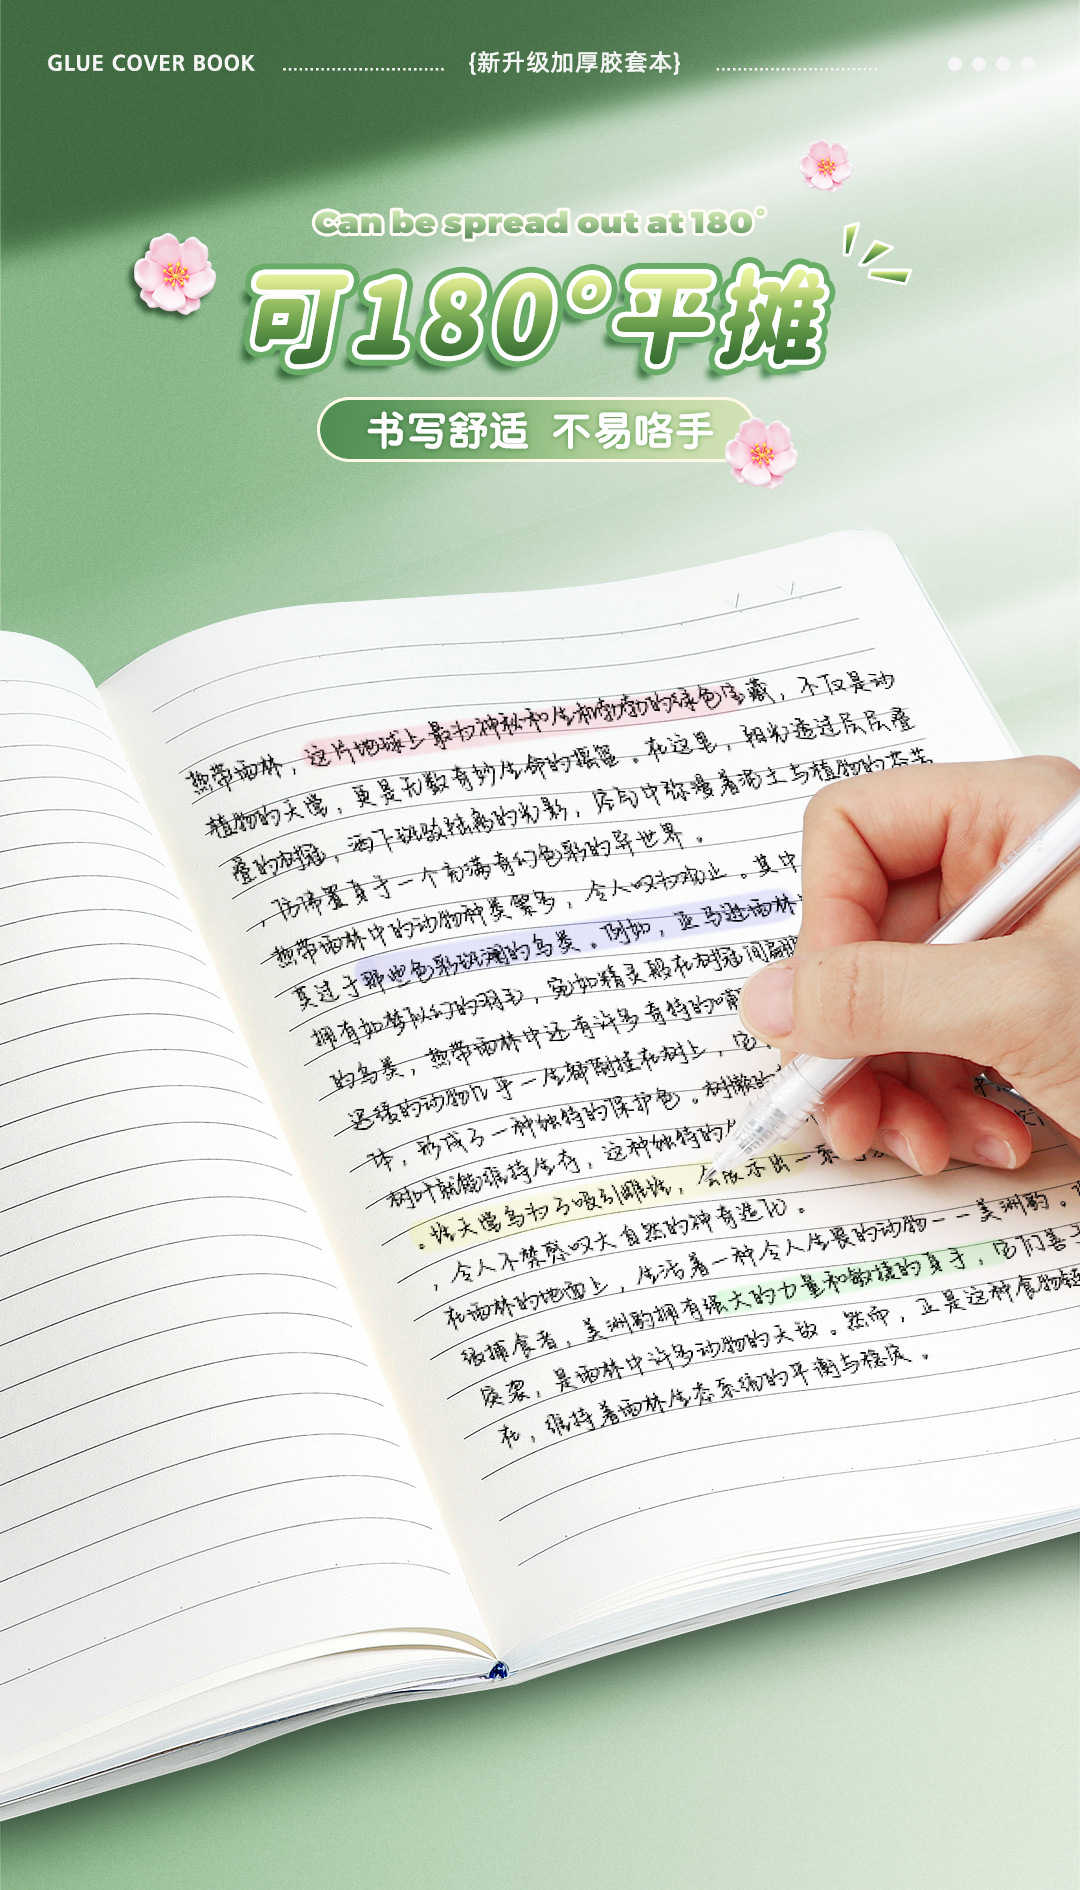 GLUE COVER BOOK
{新升级加厚胶套本}
Can be spread out at 180°
可180°平摊
书写舒适 不易咯手
热带雨林，这片地球上最为神秘和生机勃勃的绿色宝藏，不仅是动
植物的天堂，更是无数奇妙生命的摇篮。在这里，阳光透过层层叠
叠的树冠，洒下斑驳陆离的光影，空气中弥漫着泥土与植物的芬芳
，仿佛置身于一个充满奇幻色彩的异世界。
热带雨林中的动物种类繁多，令人叹为观止。其中
莫过于那些色彩斑斓的鸟类。例如，亚马逊雨林
拥有如梦似幻的羽毛，宛如精灵般在树冠间翩
的鸟类，热带雨林中还有许多奇特的哺
迟缓的动物几乎一生都倒挂在树上，它
体，形成了一种独特的保护色。树懒的
树叶就能维持生存，这种独特的
。雄天堂鸟为了吸引雌性，会展示出一系
，令人不禁感叹大自然的神奇造化。
在雨林的地面上，生活着一种令人生畏的动物——美洲豹。
级捕食者，美洲豹拥有强大的力量和敏捷的身手，它们善于
突袭，是雨林中许多动物的天敌。然而，正是这种食物链
在，维持着雨林生态系统的平衡与稳定。